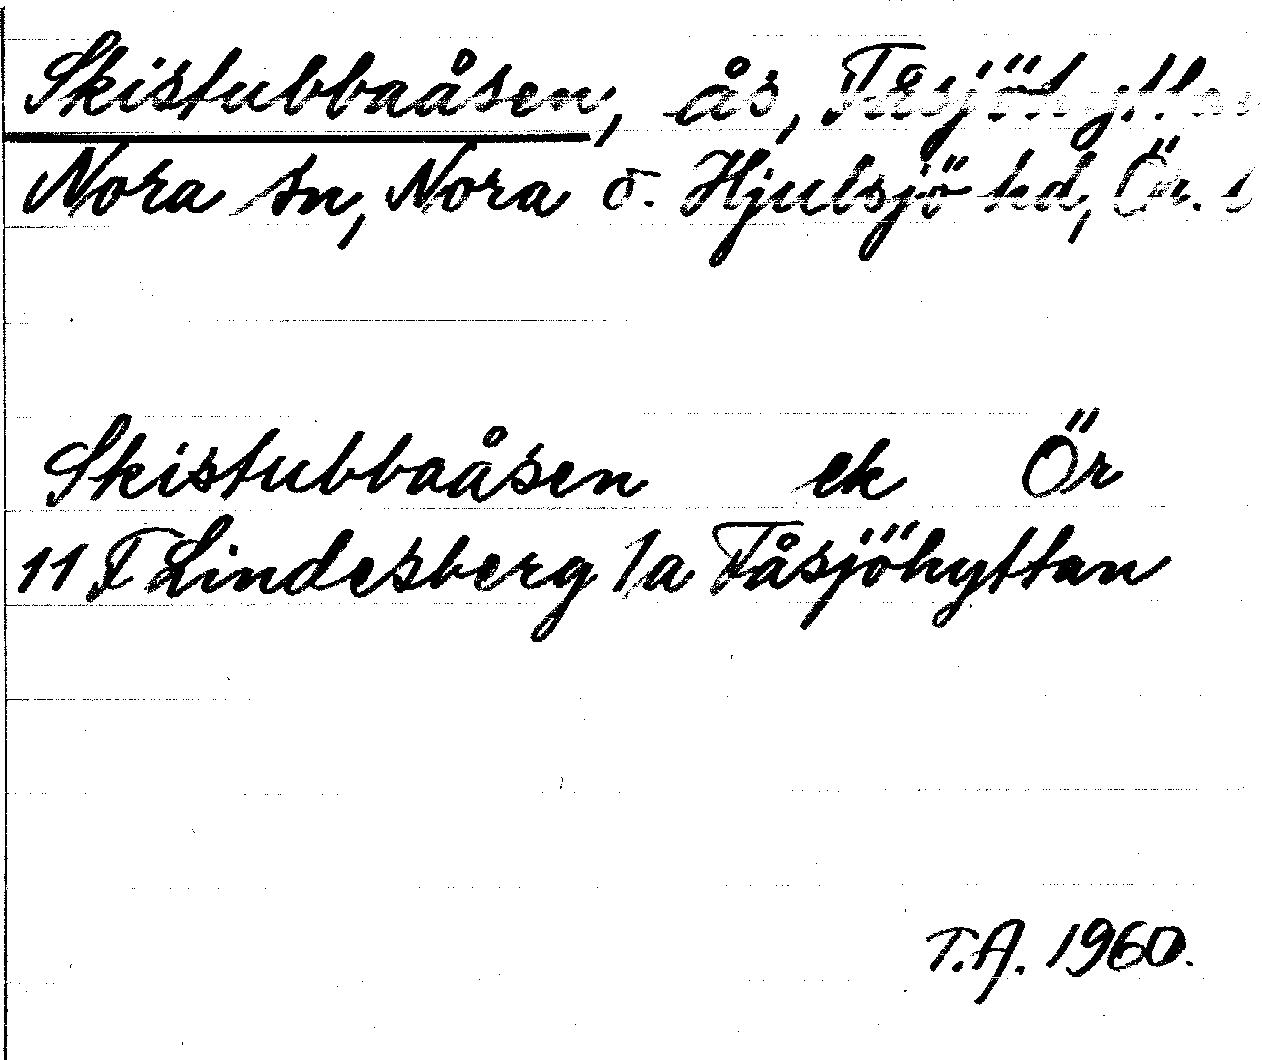 Skistubbaåsen, ås, Fåsjöhyttan
Nora sn, Nora o. Hjulsjö hd, Ör. l
Skistubbaåsen ek Ör
11 F Lindesberg 1a Fåsjöhyttan
T.A. 1960.